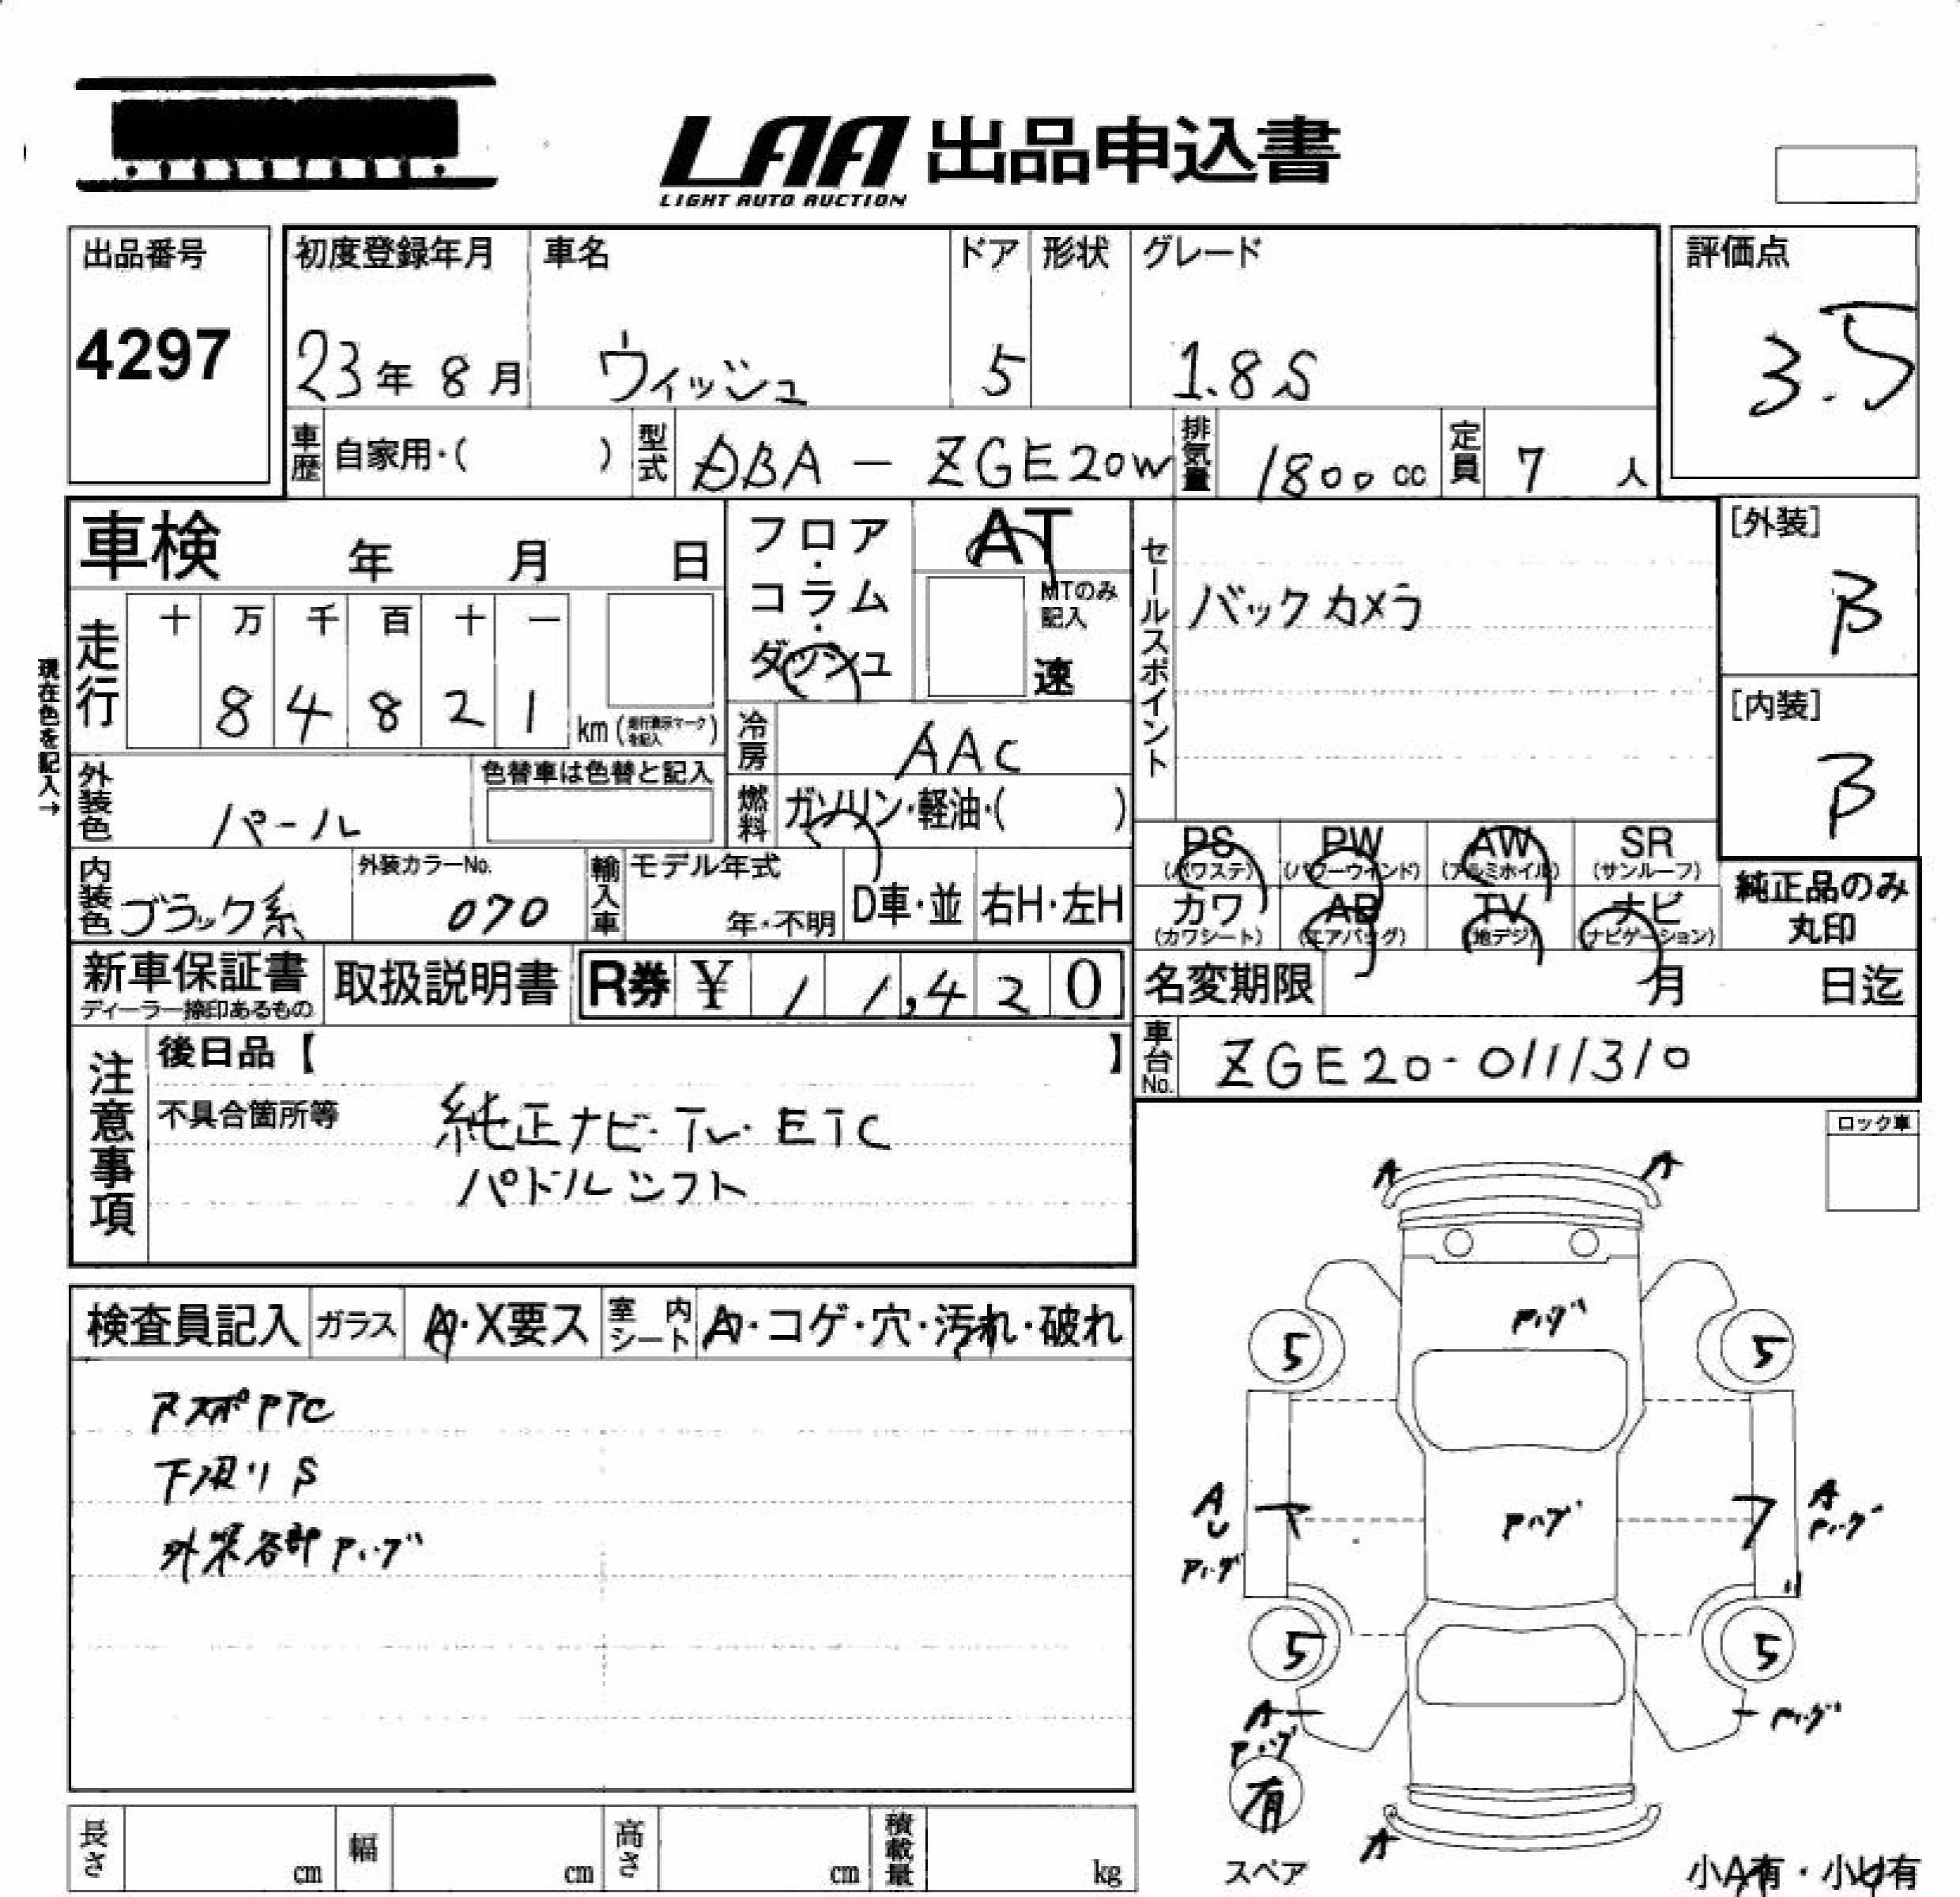 LAA 出品申込書
LIGHT AUTO AUCTION
出品番号
4297
初度登録年月
23年 8月
車名
ウィッシュ
ドア
5
形状
グレード
1.8S
評価点
3.5
車歴
自家用・( )
型式
DBA - ZGE20W
排気量
1800 cc
定員
7 人
車検 年 月 日
フロア・コラム・ダッシュ
AT
MTのみ記入
速
セールスポイント
バックカメラ
[外装]
B
[内装]
B
現在色を記入→
走行
十 万 千 百 十 一
8 4 8 2 1
km (走行表示マークを記入)
冷房
AAC
外装色
パール
色替車は色替と記入
燃料
ガソリン・軽油・( )
PS (パワステ)
PW (パワーウインド)
AW (アルミホイル)
SR (サンルーフ)
カワ (カワシート)
AB (エアバッグ)
TV (地デジ)
ナビ (ナビゲーション)
純正品のみ丸印
内装色
ブラック系
外装カラーNo.
070
輸入車
モデル年式
年・不明
D車・並
右H・左H
新車保証書
ディーラー捺印あるもの
取扱説明書
R券 ¥ 11,420
名変期限 月 日迄
車台No.
ZGE20-0111310
注意事項
後日品【 】
不具合箇所等
純正ナビ・TV・ETC
パドルシフト
ロック車
検査員記入
ガラス
A・X要ス
室内シート
A・コゲ・穴・汚れ・破れ
下廻りS
外装各部
A
A
5
5
A
U
A
5
5
A
有
スペア
A
小A有・小U有
長さ cm
幅 cm
高さ cm
積載量 kg